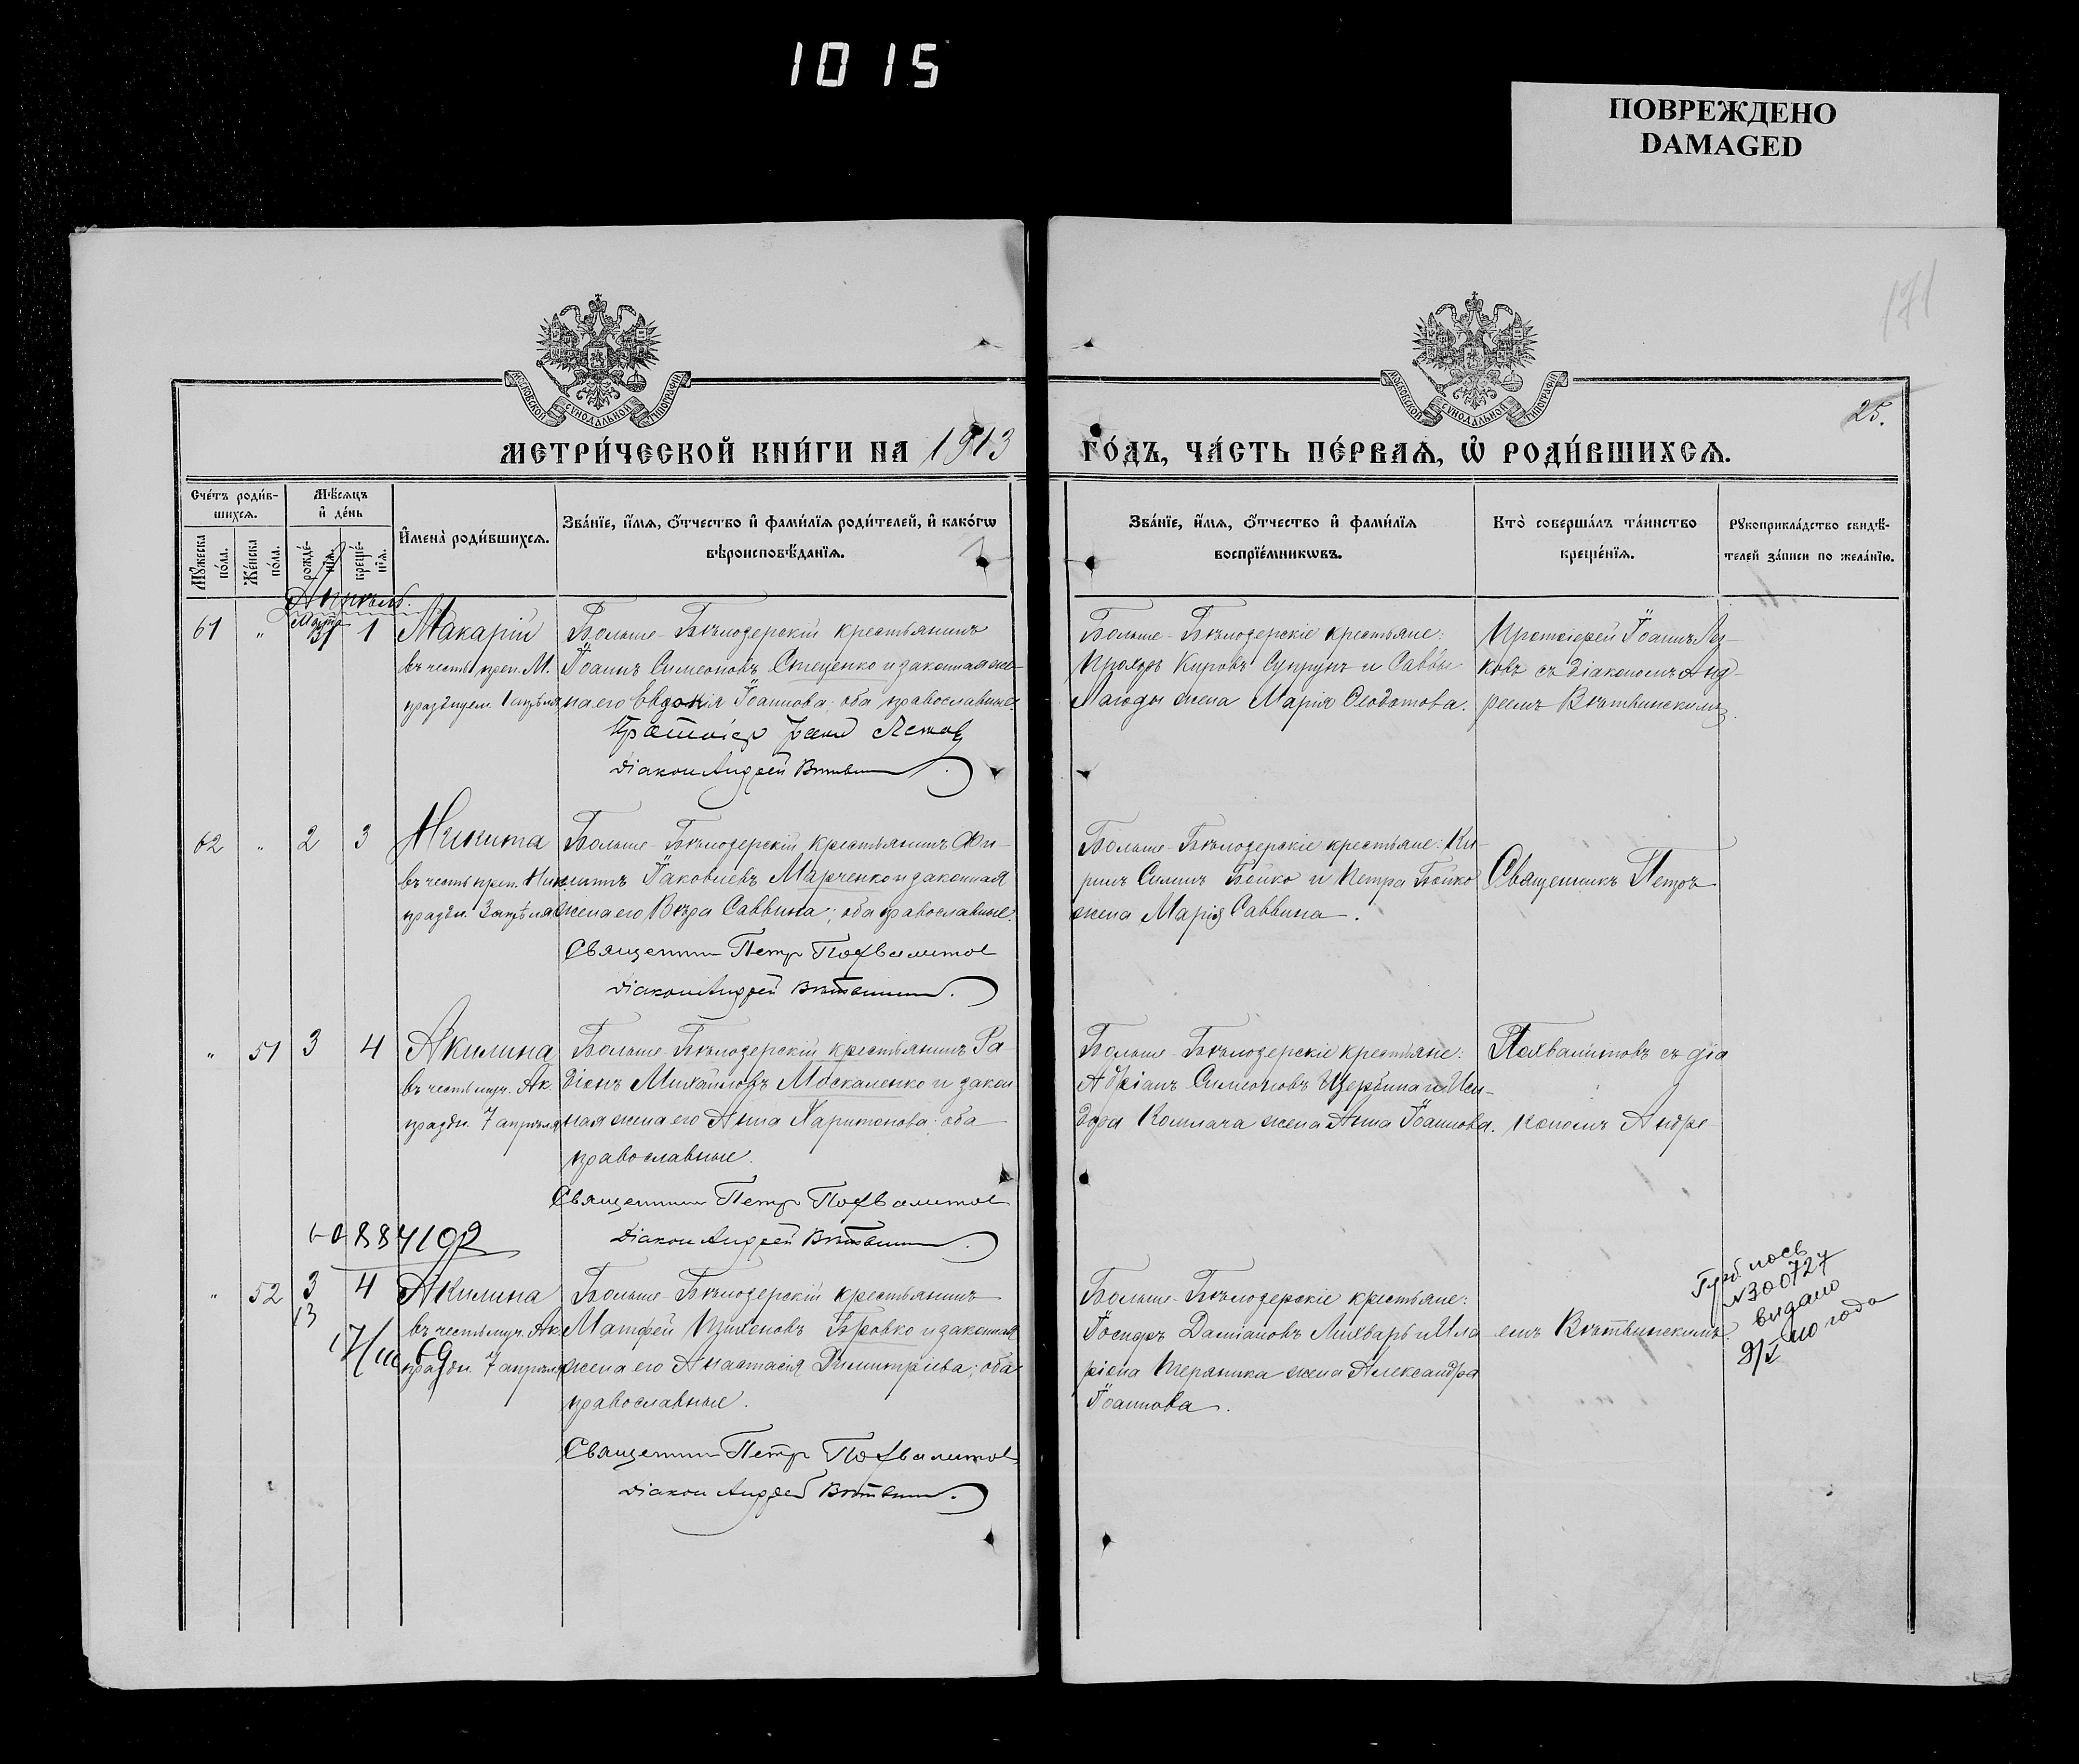 1015
ПОВРЕЖДЕНО
DAMAGED
171
25.
МОСКОВСКОЙ СѴНОДАЛЬНОЙ ТИПОГРАФІИ
МОСКОВСКОЙ СѴНОДАЛЬНОЙ ТИПОГРАФІИ
МЕТРИ́ЧЕСКОЙ КНИ́ГИ НА 1913
ГО́ДЪ, ЧА́СТЬ ПЕ́РВАѦ, Ѡ҆ РОДИ́ВШИХСѦ.
Сче́тъ роди́в-
шихсѧ.
Мѣ́сѧцъ
и҆ де́нь
Мꙋ́жеска по́ла.
Же́нска по́ла.
рожде́-нїѧ.
креще́-нїѧ.
И҆мена̀ роди́вшихсѧ.
Зва́нїе, и҆́мѧ, ѻ҆́тчество и҆ фами́лїѧ роди́телей, и҆ како́гѡ
вѣроисповѣ́данїѧ.
Зва́нїе, и҆́мѧ, ѻ҆́тчество и҆ фами́лїѧ
воспрїе́мникѡвъ.
Кто̀ соверша́лъ та́инство
креще́нїѧ.
Рꙋкоприкла́дство свидѣ́-
телей за́писи по жела́нїю.
Апрѣль.
Марта
61 " 31 1 Макарій
въ честь преп. М.
празднуем. 1 апрѣля
Больше-Бѣлозерскій крестьянинъ
Іоаннъ Симеоновъ Стеценко и законная же-
на его Евдокія Іоаннова; оба православные.
Діаконъ Андрей
Больше-Бѣлозерскіе крестьяне:
Прохоръ Кировъ Супрунъ и Саввы
Лагоды жена Марія Ѳеодотова.
Протоіерей Іоаннъ
ковъ съ діакономъ Анд-
реемъ Вѣтвинскимъ.
62 " 2 3 Никита
въ честь преп. Ник.
праздн. 3 апрѣля
Больше-Бѣлозерскій крестьянинъ Фи-
липпъ Іаковлевъ Марченко и законная
жена его Вѣра Саввина; оба православные.
Священник Петр Похвалитов
Діакон Андрей
Больше-Бѣлозерскіе крестьяне: Ки-
рилъ Бойко и Петра Бойко
жена Марія Саввина.
Священникъ Петръ
" 51 3 4 Акилина
въ честь муч. Ак.
праздн. 7 апрѣля
Больше-Бѣлозерскій крестьянинъ Ра-
діонъ Михайловъ Москаленко и закон
ная жена его Анна Харитонова; оба
православные.
Священник Петр Похвалитов
Діакон Андрей
Больше-Бѣлозерскіе крестьяне:
Адріанъ Симеоновъ Щербина и Иси-
дора жена Анна Іоаннова.
Похвалитовъ съ діа
кономъ Андре
884102
" 52 3 4 Акилина
13
въ честь муч. Ак.
праздн. 7 апрѣля
Больше-Бѣлозерскій крестьянинъ
Матфей Тихоновъ Бровко и законная
жена его Анастасія Димитріева; оба
православные.
Священник Петр Похвалитов
Діакон Андрей
Больше-Бѣлозерскіе крестьяне:
Іосифъ Даміановъ Лихварь и Ила
ріона жена Александра
Іоаннова.
емъ Вѣтвинскимъ.
№300727
видано
года